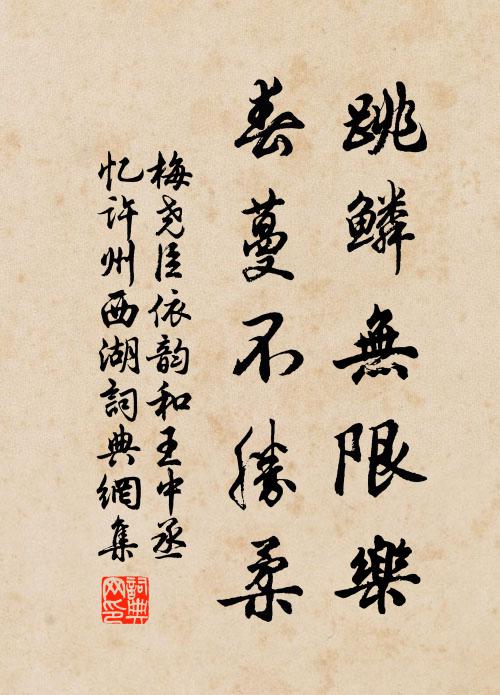 跳鱗無限樂
春蔓不勝柔
梅尧臣依韵和王中丞
忆许州西湖詞典網集
詞典網印